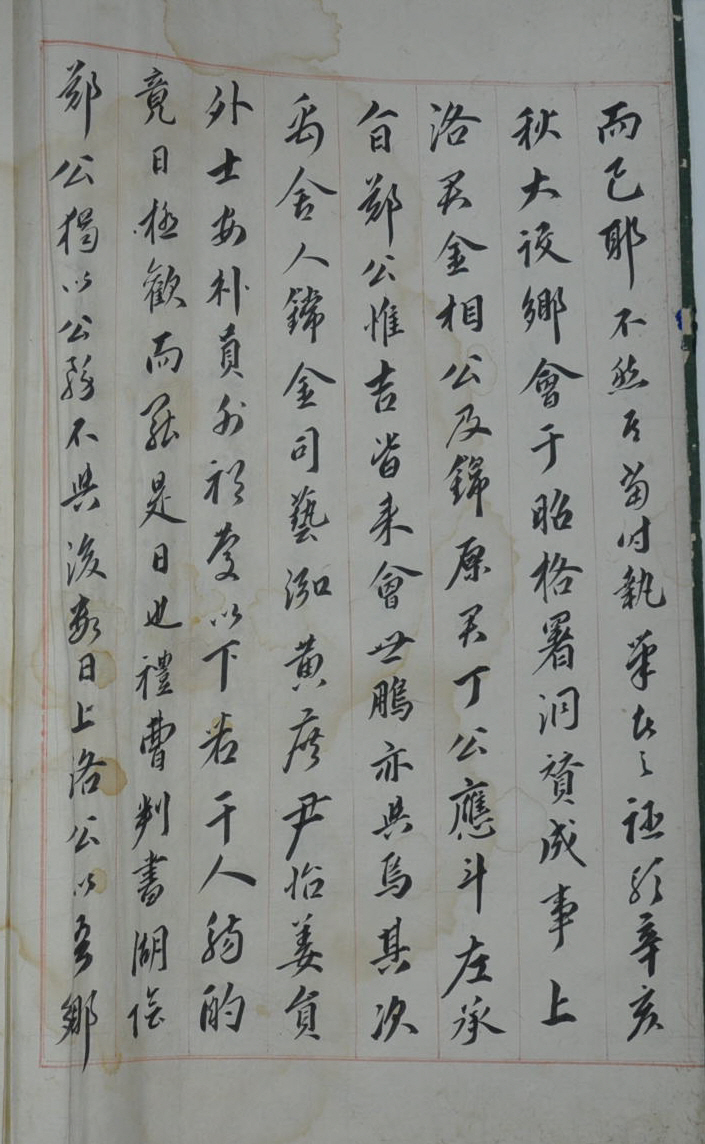 而已耶不然 當时執筆者之誣 辛亥
秋大設鄉會于昭格署洞 成事上
洛君金相公及錦原君丁公應斗左承
旨鄭公惟吉皆來會世鵬亦與焉其次
禹舍人 金司藝泓黃 尹怡姜員
外士安朴員外 以下若干人觴酌
竟日極歡而罷是日也禮曹判書湖陰
鄭公獨以公務不與後數日上洛公以吾鄉